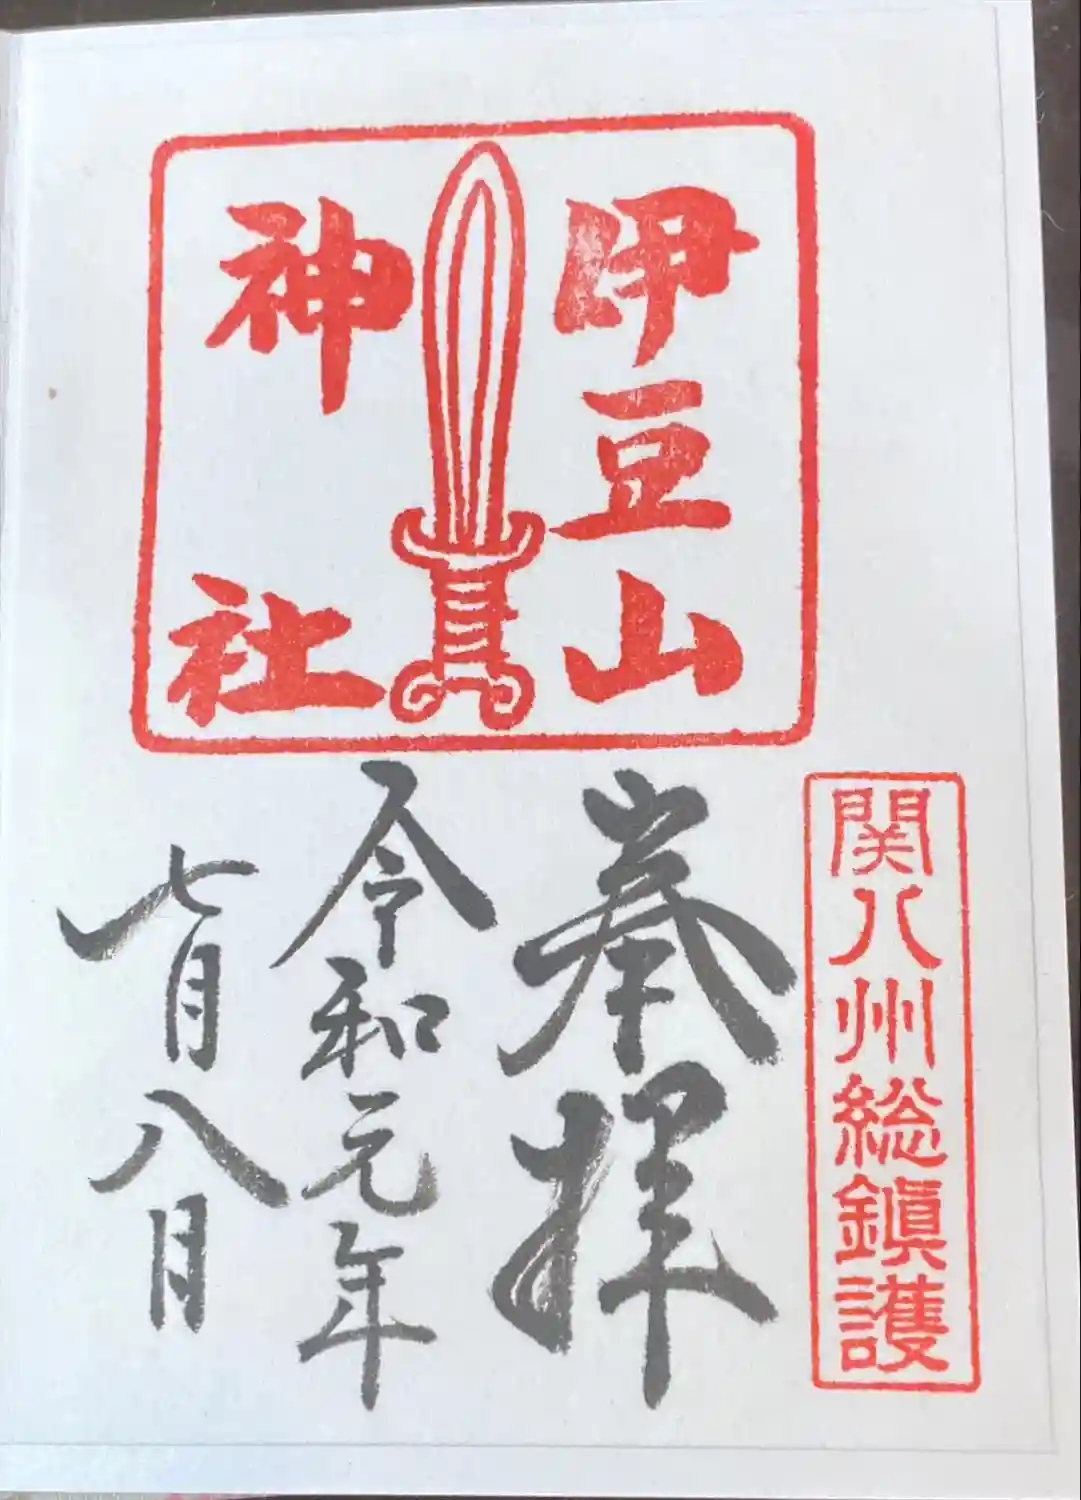 伊豆山
神社
関八州総鎮護
奉拝
令和元年
七月八日